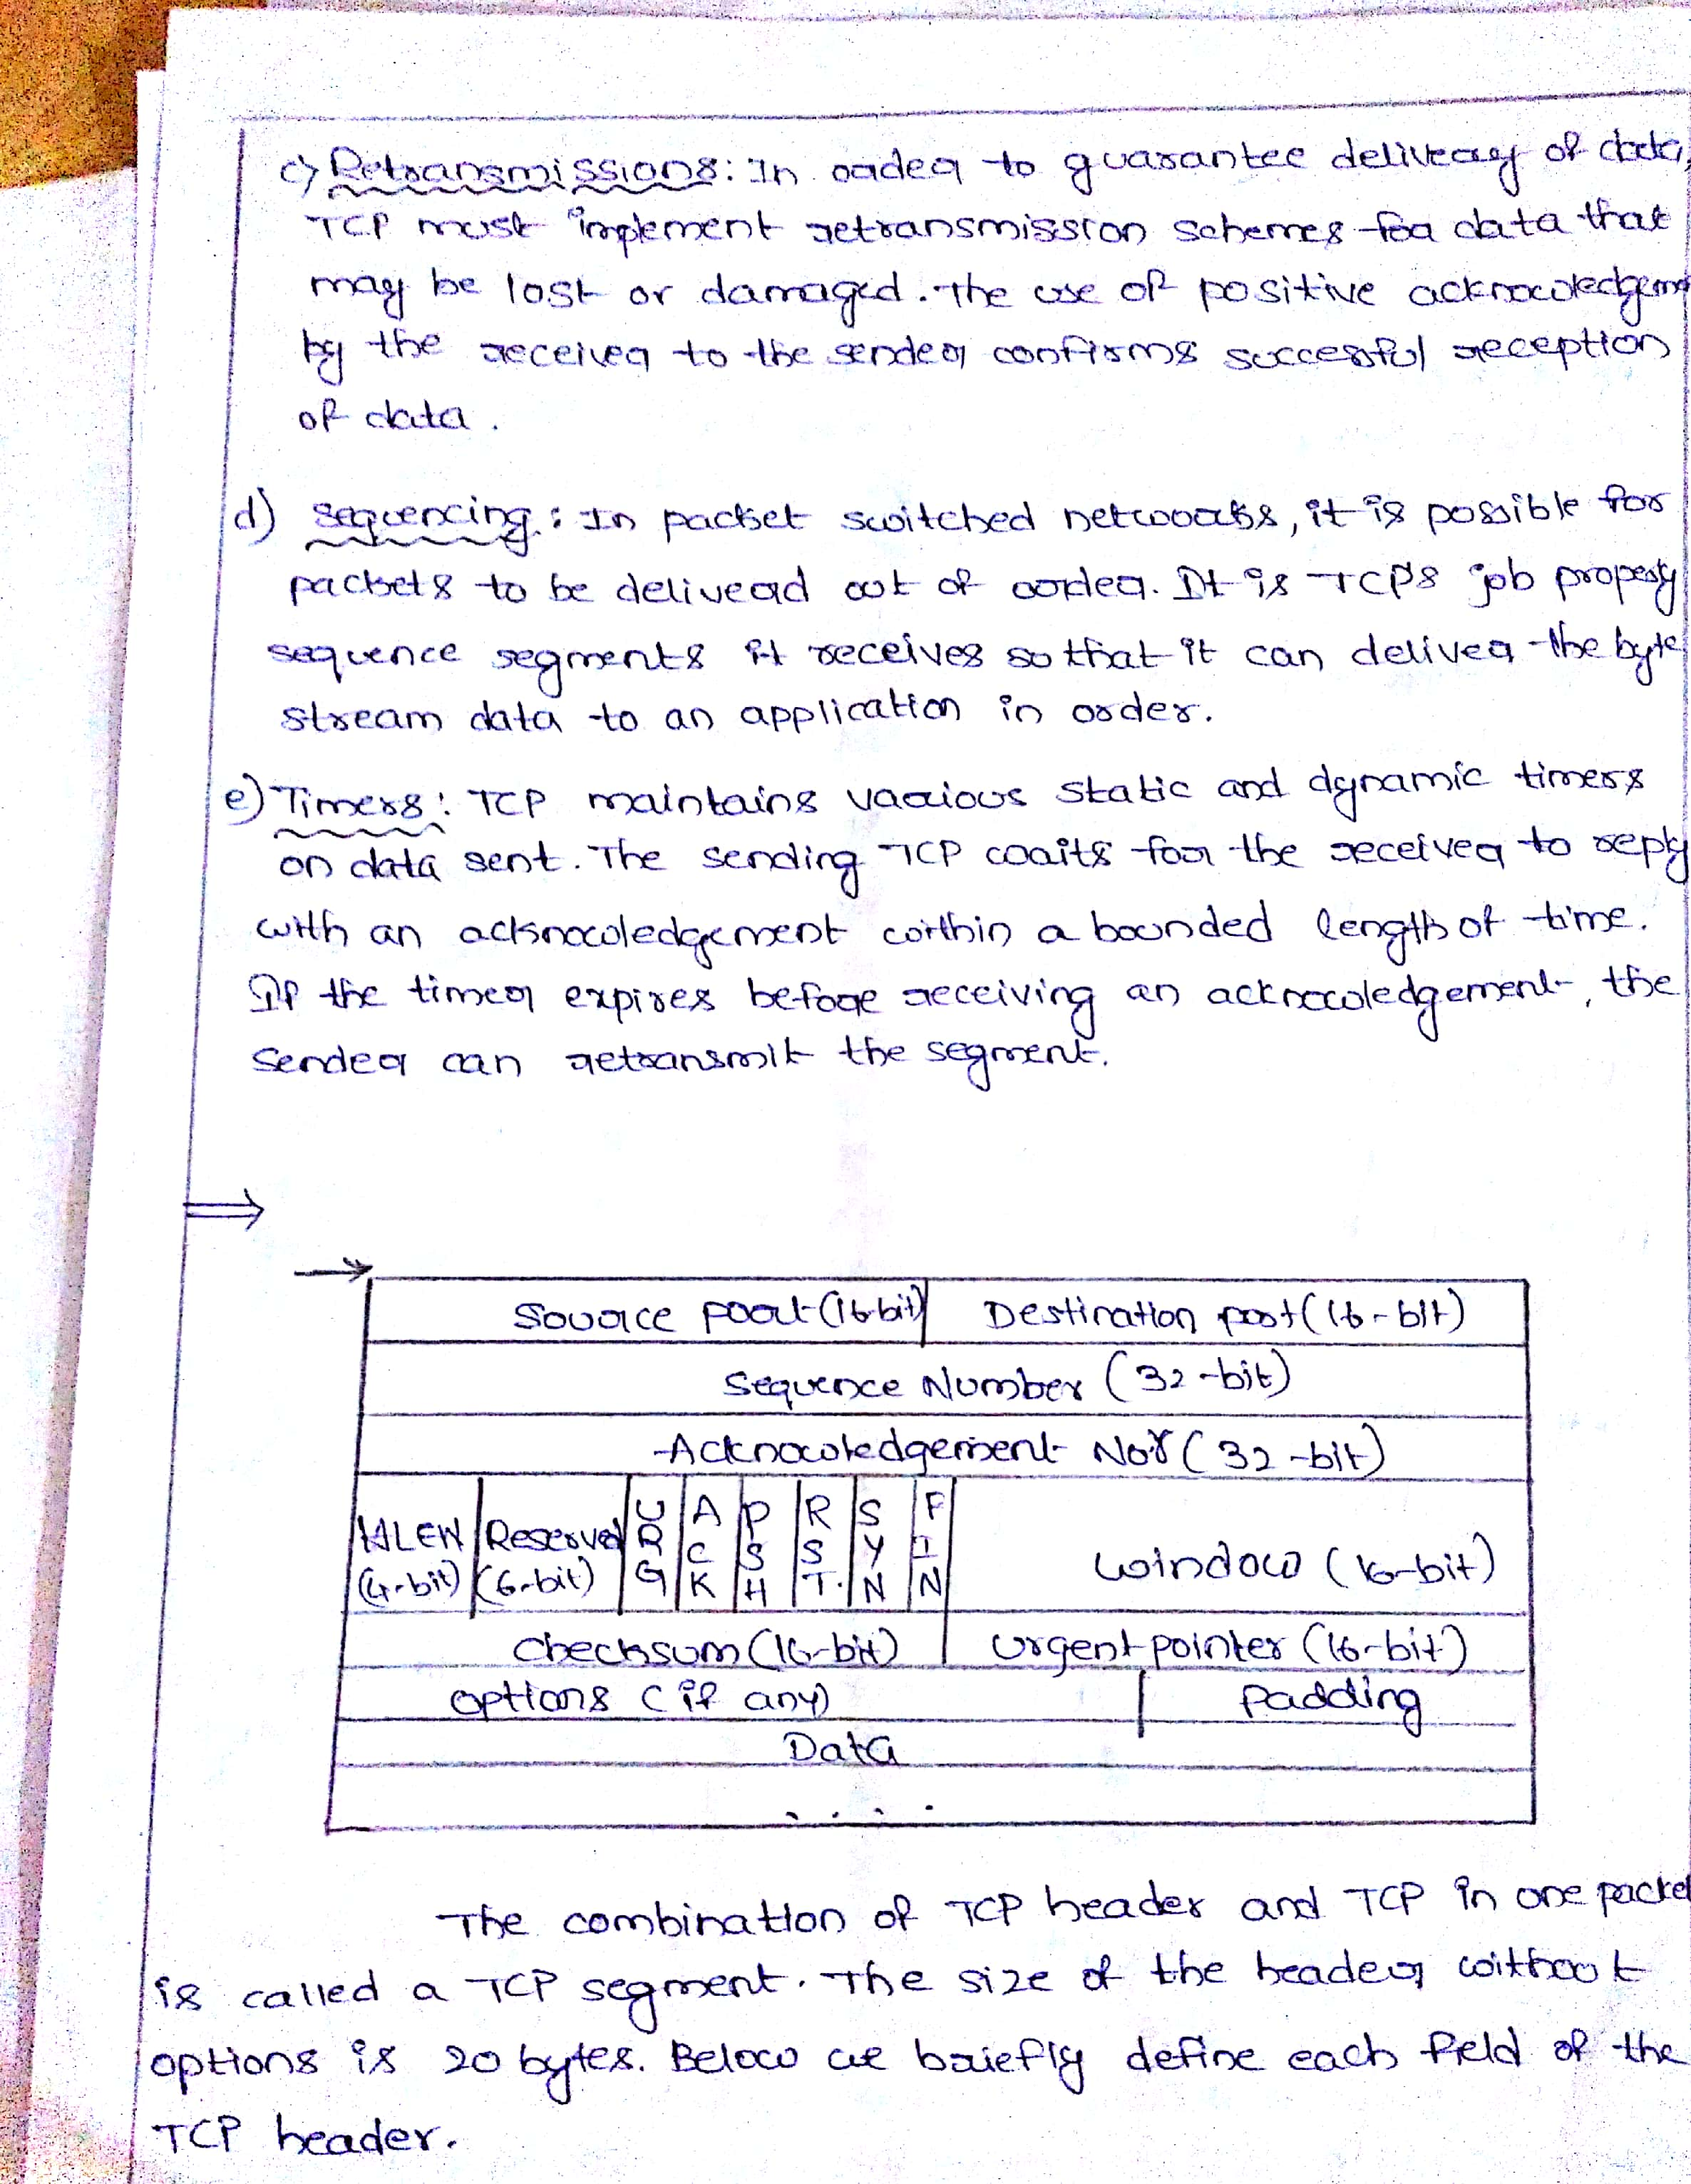 c) Retransmissions: In order to guarantee delivery of data,
TCP must implement retransmission schemes for data that
may be lost or damaged. The use of positive acknowledgem
by the receiver to the sender confirms successful reception
of data.
d) sequencing: In packet switched networks, it is possible for
packets to be deliverd out of oorder. It is TCPs job properly
sequence segments it receives so that it can deliver the byte
stream data to an application in order.
e) Timers: TCP maintains various static and dynamic timers
on data sent. The sending TCP waits for the receiver to reply
with an acknowledgement within a bounded length of time.
If the timer expires before receiving an acknowledgement, the
sender can retransmit the segment.
⇒
→
Source port (16-bit) Destination port (16-bit)
Sequence Number (32-bit)
Acknowledgement No:r (32-bit)
HLEN (4-bit) Reserved (6-bit) URG ACK PSH RST. SYN FIN window (16-bit)
checksum (16-bit) urgent pointer (16-bit)
options (if any) Padding
Data
. . . .
The combination of TCP header and TCP in one packet
is called a TCP segment. The size of the header without
options is 20 bytes. Below we briefly define each field of the
TCP header.